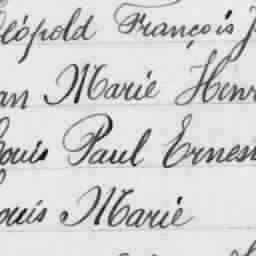 Léopold François J
an Marie Henr
Louis Paul Ernes
ouis Marie